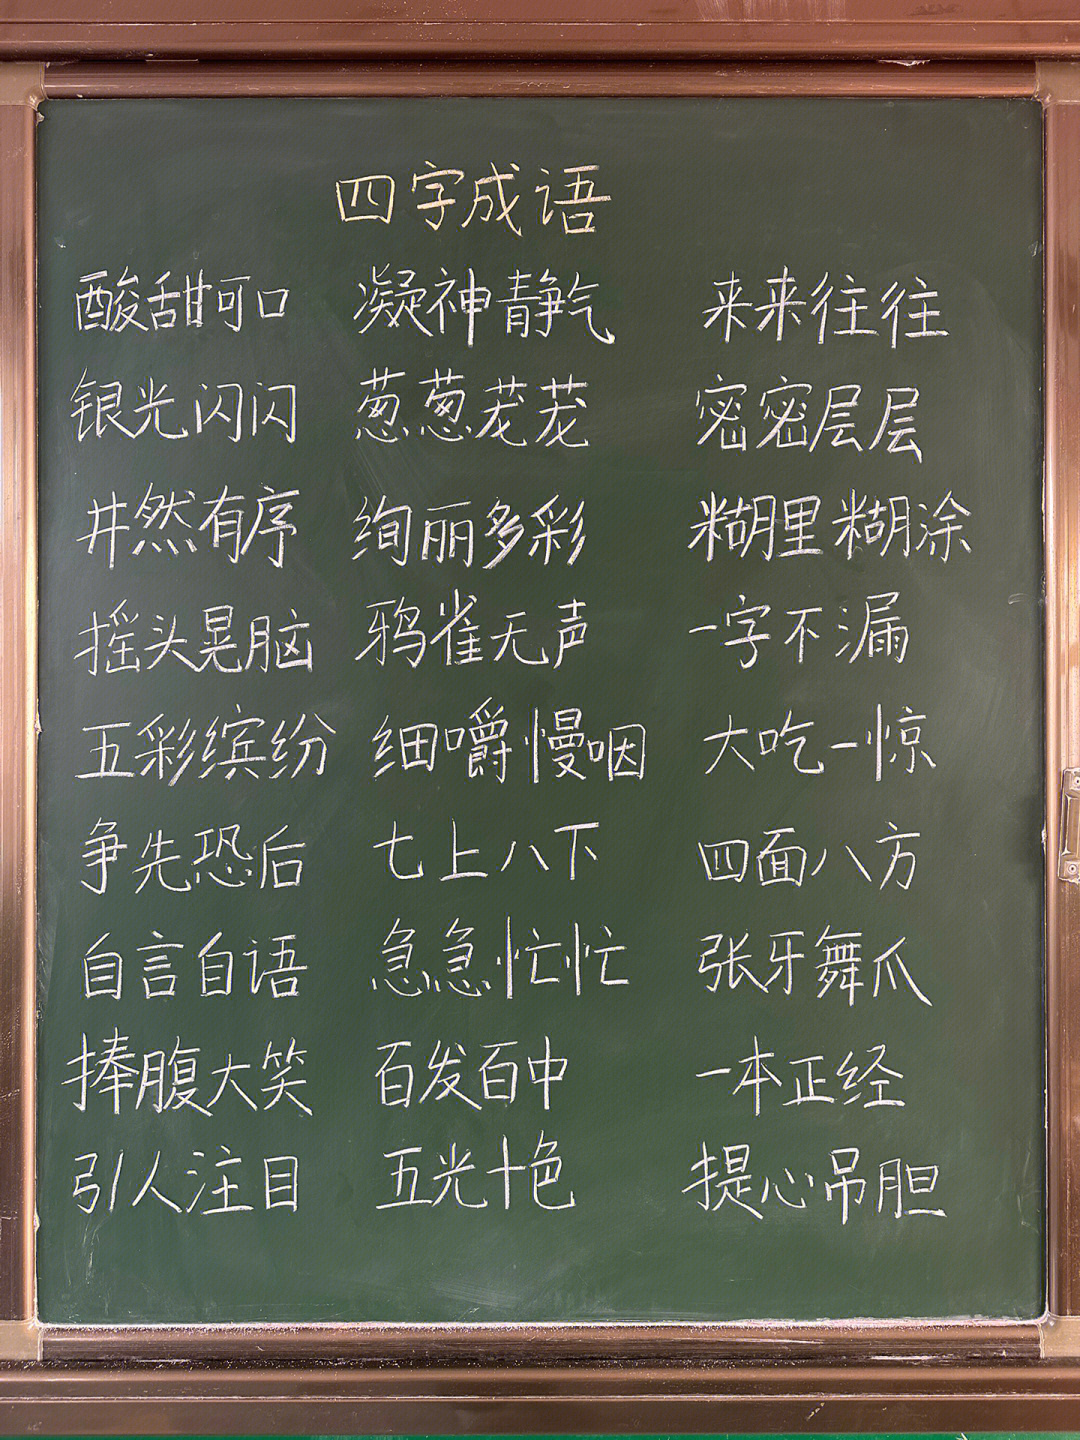 四字成语
酸甜可口 凝神静气 来来往往
银光闪闪 葱葱茏茏 密密层层
井然有序 绚丽多彩 糊里糊涂
摇头晃脑 鸦雀无声 一字不漏
五彩缤纷 细嚼慢咽 大吃一惊
争先恐后 七上八下 四面八方
自言自语 急急忙忙 张牙舞爪
捧腹大笑 百发百中 一本正经
引人注目 五光十色 提心吊胆